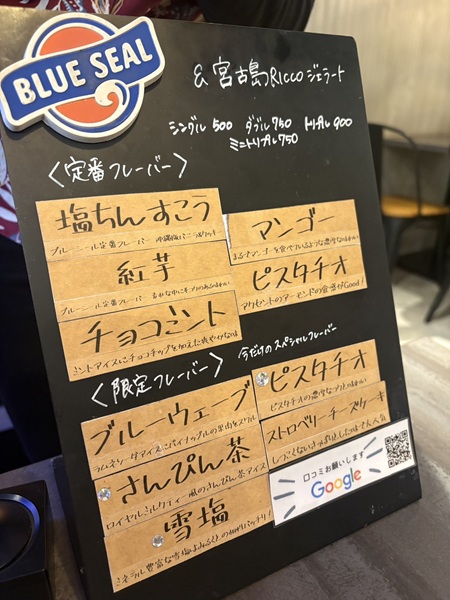 BLUE SEAL
& 宮古島Riccoジェラート
シングル 500 ダブル 750 トリプル 900
ミニトリプル 750
〈定番フレーバー〉
塩ちんすこう
ブルーシール定番フレーバー
マンゴー
まるでマンゴーを食べているような濃厚な味わい
紅芋
ブルーシール定番フレーバー
ピスタチオ
アクセントのアーモンドの食感がGood!
チョコミント
ミントアイスにチョコチップを加えた爽やかな味
〈限定フレーバー〉
今だけのスペシャルフレーバー
ブルーウェーブ
ラムネソーダアイスにパイナップルの果肉をミックス
ピスタチオ
ピスタチオの濃厚な味わい
さんぴん茶
ロイヤルミルクティー風のさんぴん茶アイス
ストロベリーチーズケーキ
雪塩
口コミお願いします
Google